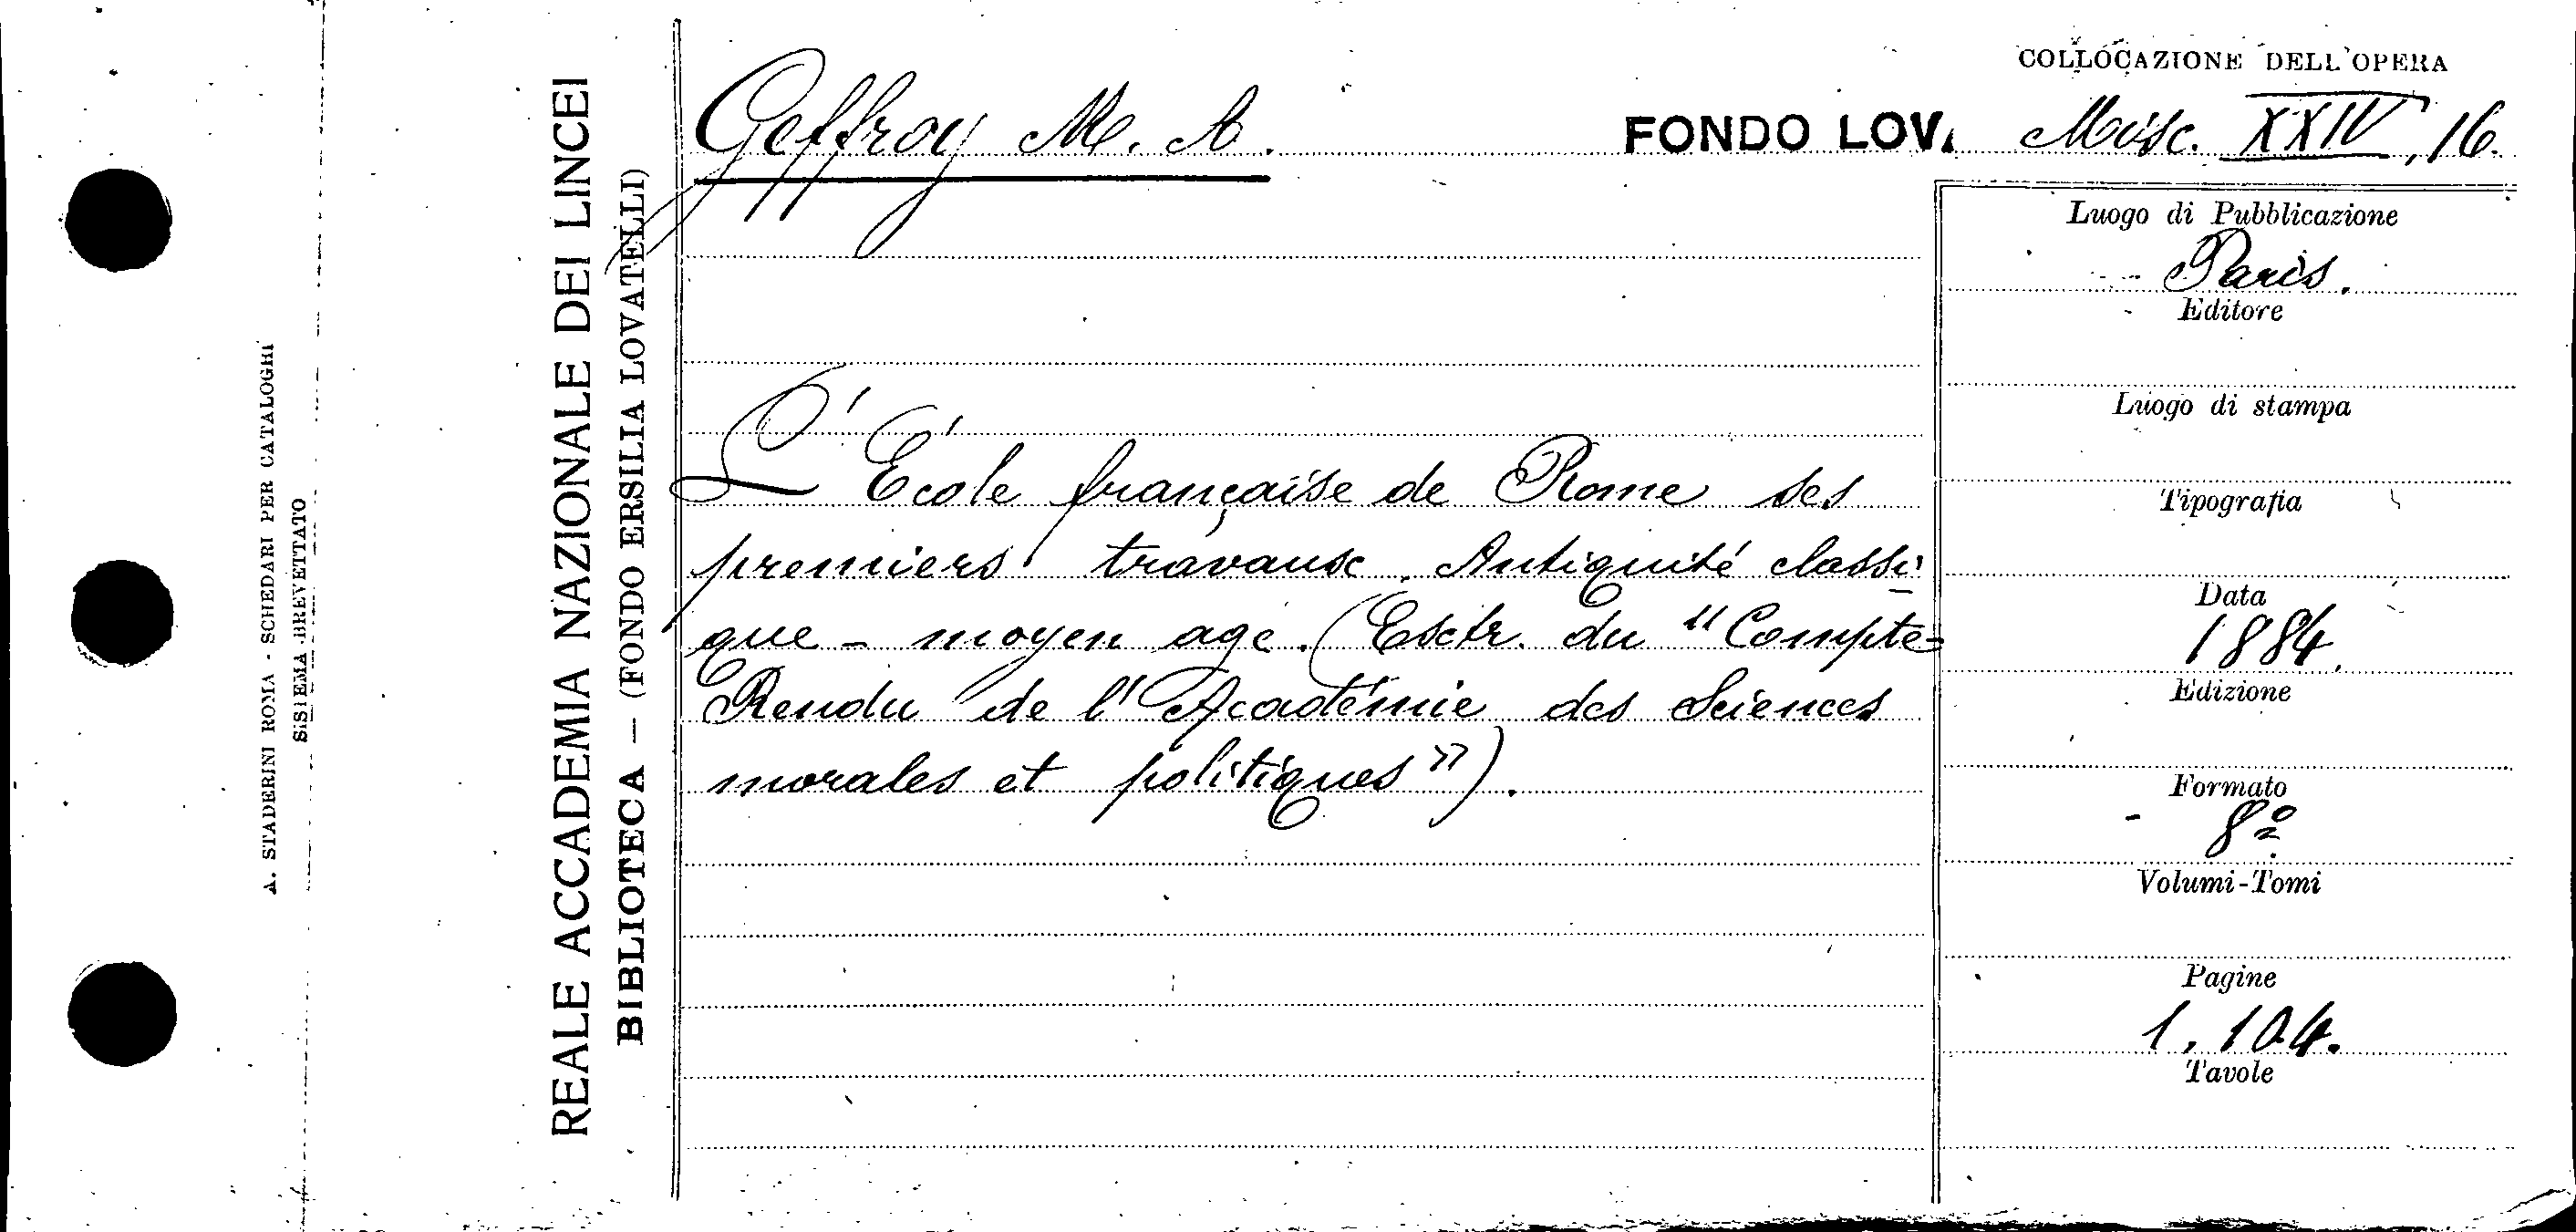 A. STADERINI ROMA - SCHEDARI PER CATALOGHI
SISTEMA BREVETTATO
REALE ACCADEMIA NAZIONALE DEI LINCEI
BIBLIOTECA — (FONDO ERSILIA LOVATELLI)
COLLOCAZIONE DELL'OPERA
Geffroy M. A.
FONDO LOV. Misc. XXIV, 16.
L'École française de Rome ses
premiers travaux. Antiquité classi-
que - moyen age. (Extr. du "Compte=
Rendu de l'Académie des Sciences
morales et politiques").
Luogo di Pubblicazione
Paris.
Editore
Luogo di stampa
Tipografia
Data
1884.
Edizione
Formato
8º
Volumi-Tomi
Pagine
1, 104.
Tavole